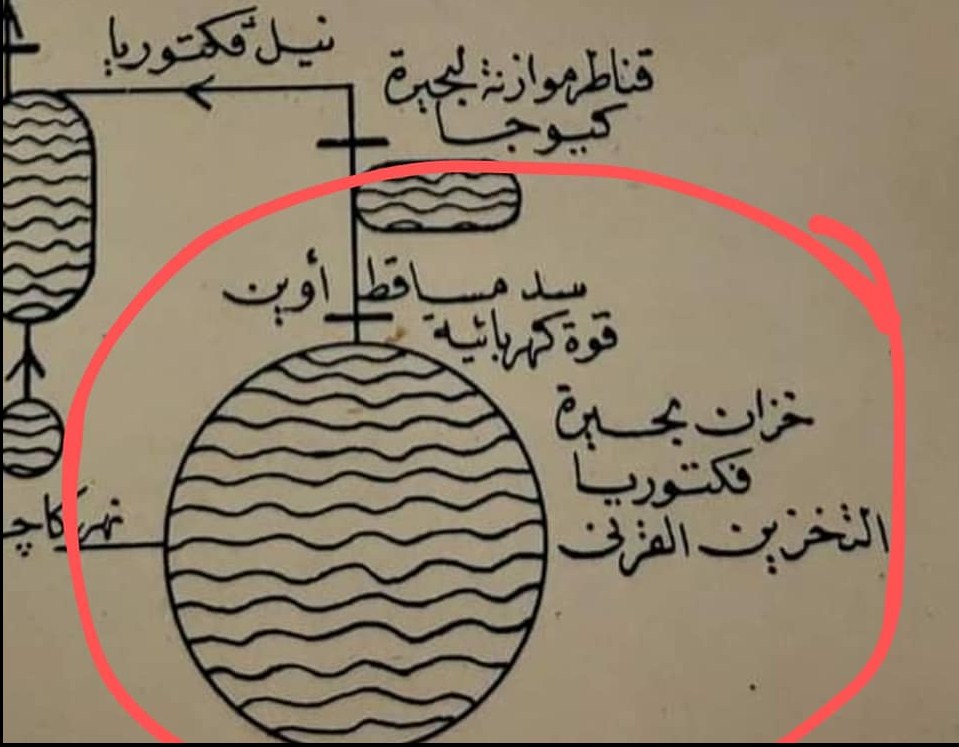 نيل فكتوريا
قناطر موازنة لبحيرة
كيوجا
سد مساقط أوين
قوة كهربائية
خزان بحيرة
فكتوريا
التخزين القرنى
نهر كاجـ